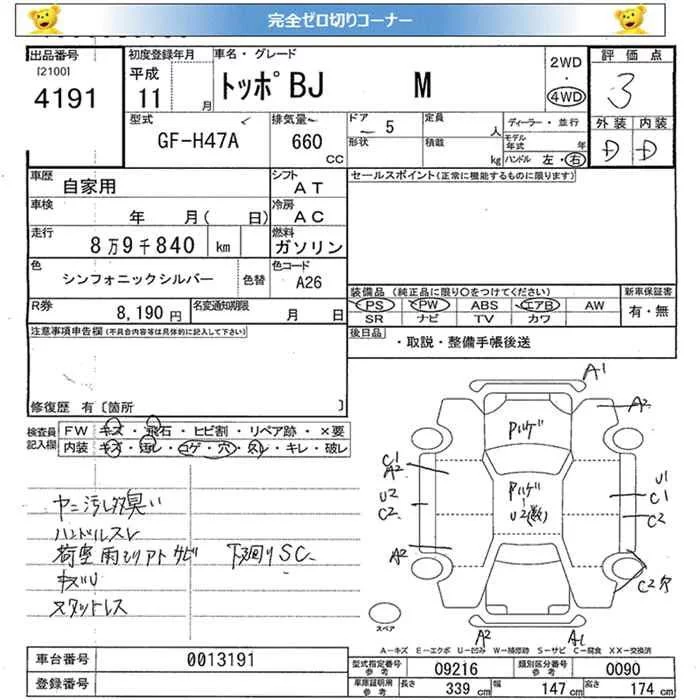 完全ゼロ切りコーナー
出品番号 初度登録年月 車名・グレード 2WD 評価点
[2100] 平成 ・ 3
4191 11 月 トッポBJ M 4WD
外装 内装
型式 排気量 ドア 5 定員 人 ディーラー・並行 D D
GF-H47A 660 CC 形状 積載 kg モデル年式 年
ハンドル 左・右
車歴 自家用 シフト AT セールスポイント(正常に機能するものに限ります)
車検 年 月( 日) 冷房 AC
走行 8万9千840 km 燃料 ガソリン
色 シンフォニックシルバー 色替 色コード A26
装備品 (純正品に限り○をつけてください) 新車保証書
PS PW ABS エアB AW 有・無
SR ナビ TV カワ
R券 8,190円 名変通知期限 月 日
後日品 ・取説・整備手帳後送
注意事項申告欄(不具合内容等は具体的に記入して下さい)
修復歴 有〔箇所 〕
検査員記入欄 FW キズ・飛石・ヒビ割・リペア跡・×要
内装 キズ・汚レ・コゲ・穴・スレ・キレ・破レ
ヤニ汚レ多臭い
ハンドルスレ
荷室雨モリアトサビ 下廻りSC
キズU
スタットレス
A1
A2
Pハゲ
C1
A2
U2
C2
A2
Pハゲ
U2(数)
U1
C1
C2
C2穴
A2 A1
スペア
A-キズ E-エクボ U-凹み W-補修跡 S-サビ C-腐食 XX-交換済
車台番号 0013191 型式指定番号 参考 09216 類別区分番号 参考 0090
登録番号 車庫証明用 参考 長さ 339 cm 幅 147 cm 高さ 174 cm